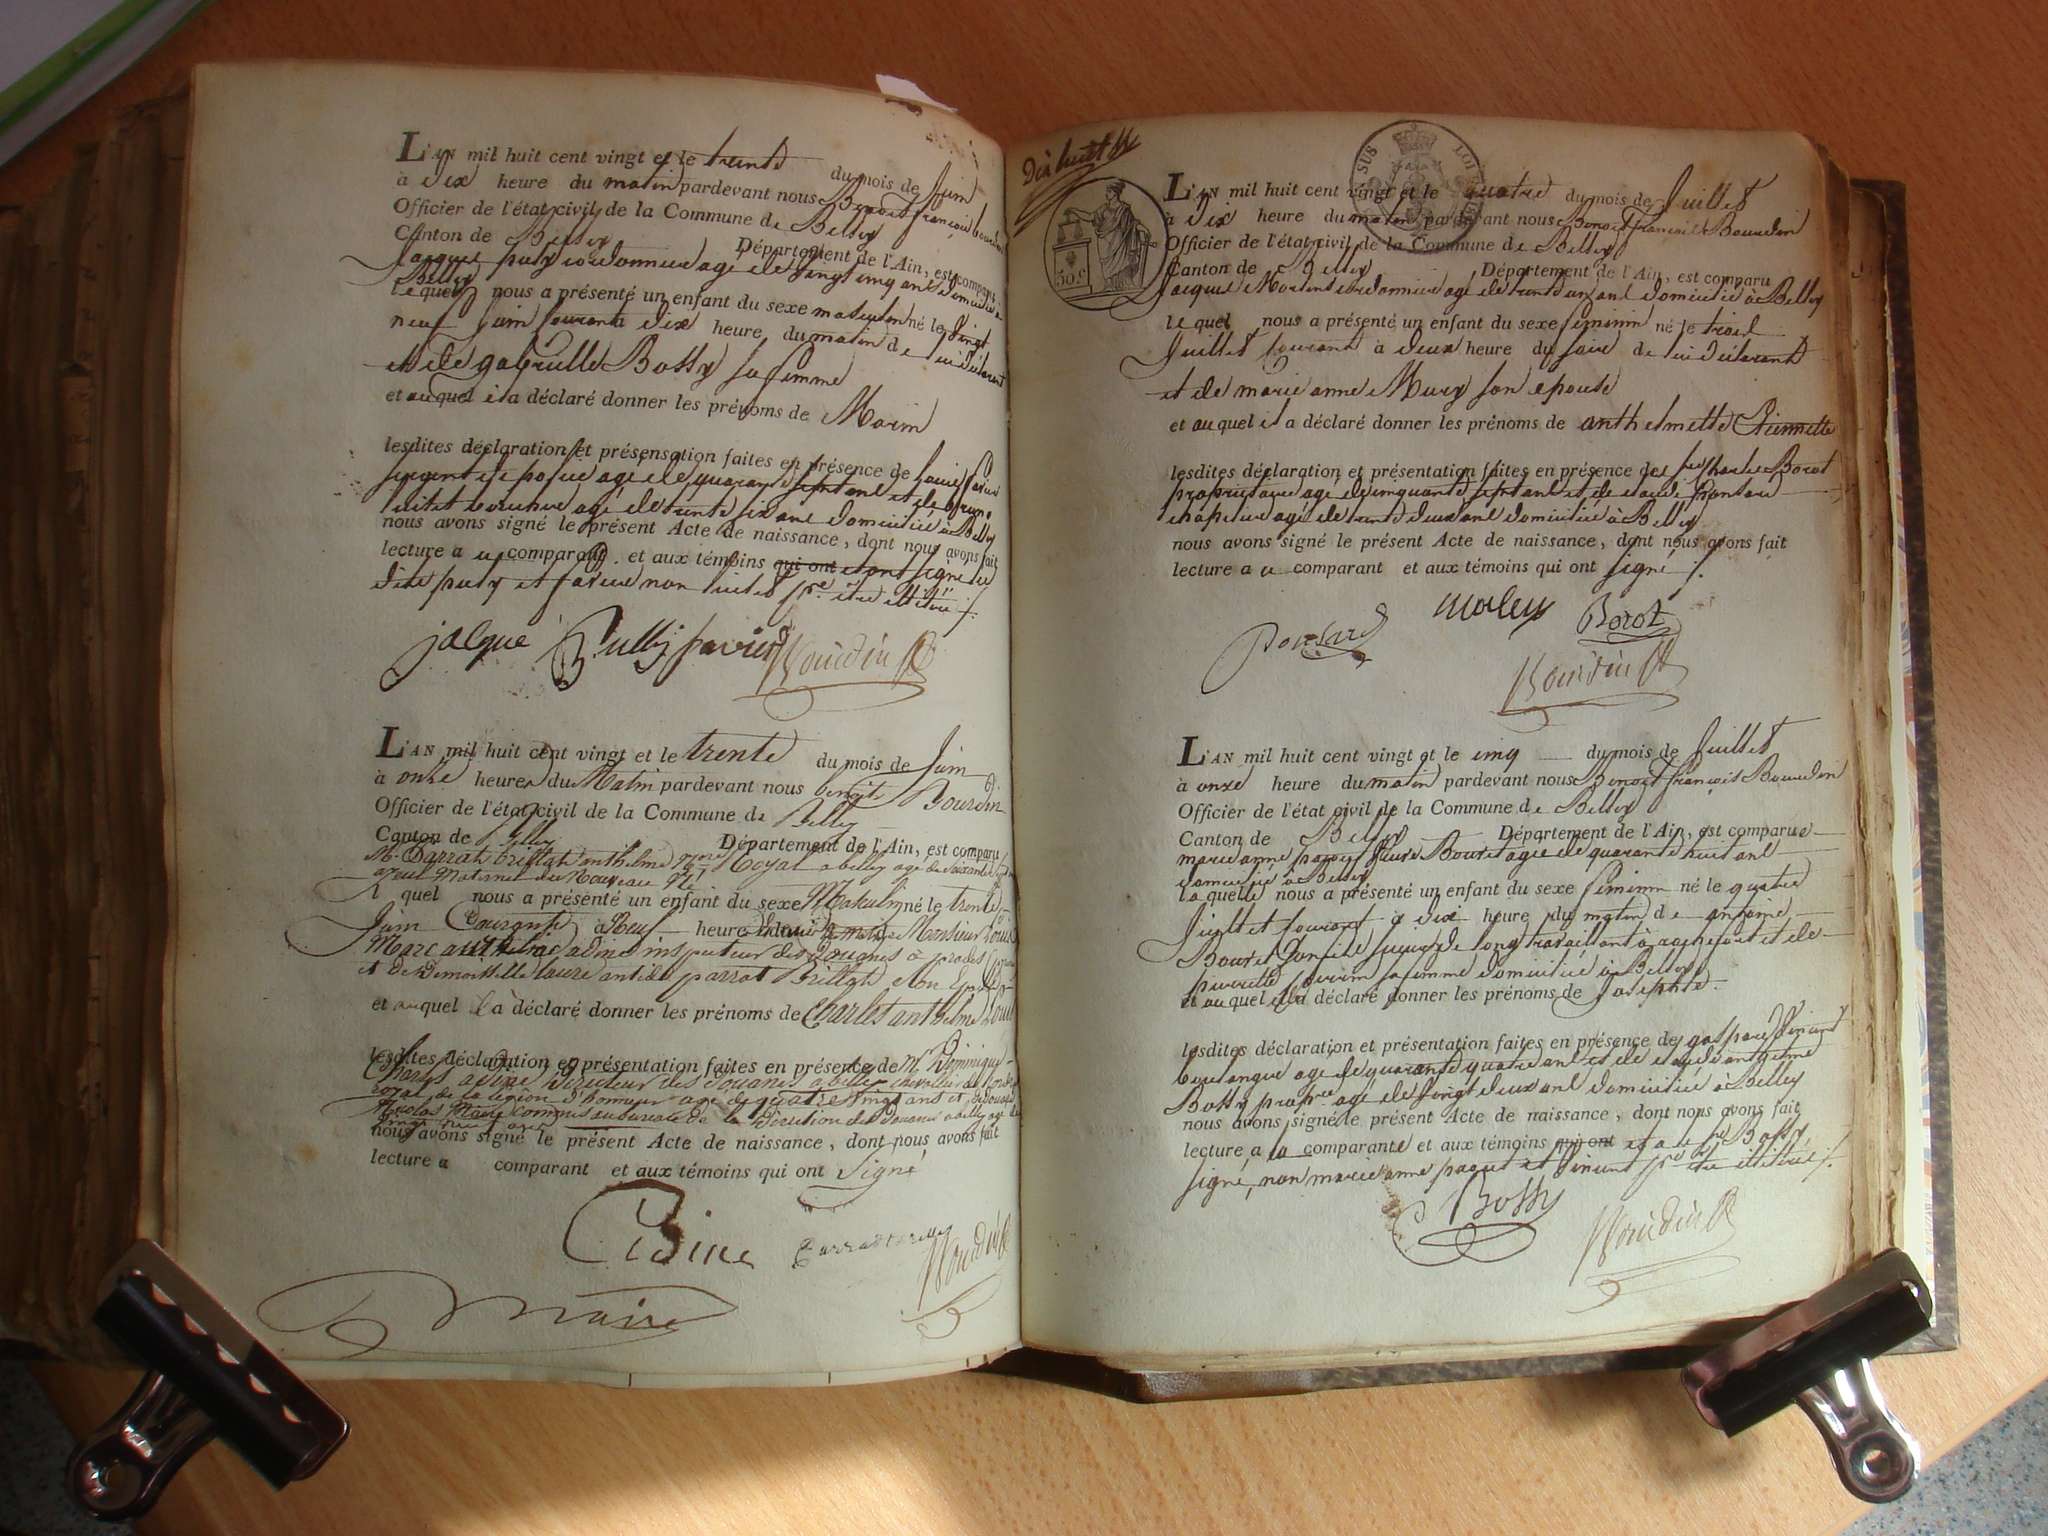 L'AN mil huit cent vingt et le trente du mois de Juin
à dix heure du matin pardevant nous Benoit françois bourdin
Officier de l'état civil de la Commune de Belley
Canton de Belley Département de l'Ain, est comparu
Jacques age de vingt cinq ans domicilié à
Belley
lequel nous a présenté un enfant du sexe masculin né le vingt
neuf Juin courant à dix heure du matin de lui déclarant
et de gabrielle Bossy sa femme
et auquel il a déclaré donner les prénoms de Marin
lesdites déclaration et présensation faites en présence de
sergent de police age de quarante sept ans et de
agé de trente six ans domicilié à Belley
nous avons signé le présent Acte de naissance, dont nous avons fait
lecture a ce comparant et aux témoins qui ont et ont signé
et favier non pr. être illitéré
jacque favier Bourdin
L'AN mil huit cent vingt et le trente du mois de Juin
à onze heures du Matin pardevant nous benoit f. Bourdin
Officier de l'état civil de la Commune de Belley
Canton de Belley Département de l'Ain, est comparu
Mr. Parrat brillat anthelme Royal a belley agé de soixante
ayeul Maternel du Nouveau Né
l quel nous a présenté un enfant du sexe Maskulin né le trente
Juin Courant à Neuf heure Monsieur Louis
Marc adine inspecteur des Douanes a
et de Demoiselle laure parrat Brillat son
et auquel il à déclaré donner les prénoms de Charles anthelme Louis
lesdites déclaration et présentation faites en présence de Mr Dominique
Charles adine Directeur des Douanes a belley chevalier de l'ordre
royal de la légion d'honneur age de quatre vingt ans et
Nicolas Maire Commis de la Direction des Douanes a belley agé de
nous avons signé le présent Acte de naissance, dont nous avons fait
lecture a comparant et aux témoins qui ont Signé
Bourdin
maire
Dix huit
SUS LOI
50 c
L'AN mil huit cent vingt et le quatre du mois de Juillet
à dix heure du matin pardevant nous Benoit françois Bourdin
Officier de l'état civil de la Commune de Belley
Canton de Belley Département de l'Ain, est comparu
Jacques cordonnier agé de trente un ans domicilié à Belley
lequel nous a présenté un enfant du sexe féminin né le trois
Juillet courant à deux heure du soire de lui déclarant
et de marie anne Mury son epouse
et auquel il a déclaré donner les prénoms de anthelmette Etiennette
lesdites déclaration et présentation faites en présence des Charles Borot
proprietaire agé de cinquante sept ans et de claude Ponsard
chapelier agé de trente deux ans domicilié à Belley
nous avons signé le présent Acte de naissance, dont nous avons fait
lecture a ce comparant et aux témoins qui ont signé
Ponsard Borot
Bourdin
L'AN mil huit cent vingt et le cinq du mois de Juillet
à onze heure du matin pardevant nous Benoit françois Bourdin
Officier de l'état civil de la Commune de Belley
Canton de Belley Département de l'Ain, est comparue
marie anne Bouvet agée de quarante huit ans
domiciliée à Belley
laquelle nous a présenté un enfant du sexe féminin né le quatre
Juillet courant à dix heure du matin de antoine
Bouvet son fils de long travaillant à rochefort et de
pierrette sa femme domicilié à Belley
et auquel elle a déclaré donner les prénoms de Josephte
lesdites déclaration et présentation faites en présence de gaspard Vincent
boulanger agé de quarante quatre ans et de claude anthelme
Bossy propre. agé de vingt deux ans domicilié à Belley
nous avons signé le présent Acte de naissance, dont nous avons fait
lecture a la comparante et aux témoins qui ont et a ce Bossy
signé, non marie anne paquet et Vincent pr. être illitéré
Bossy Bourdin